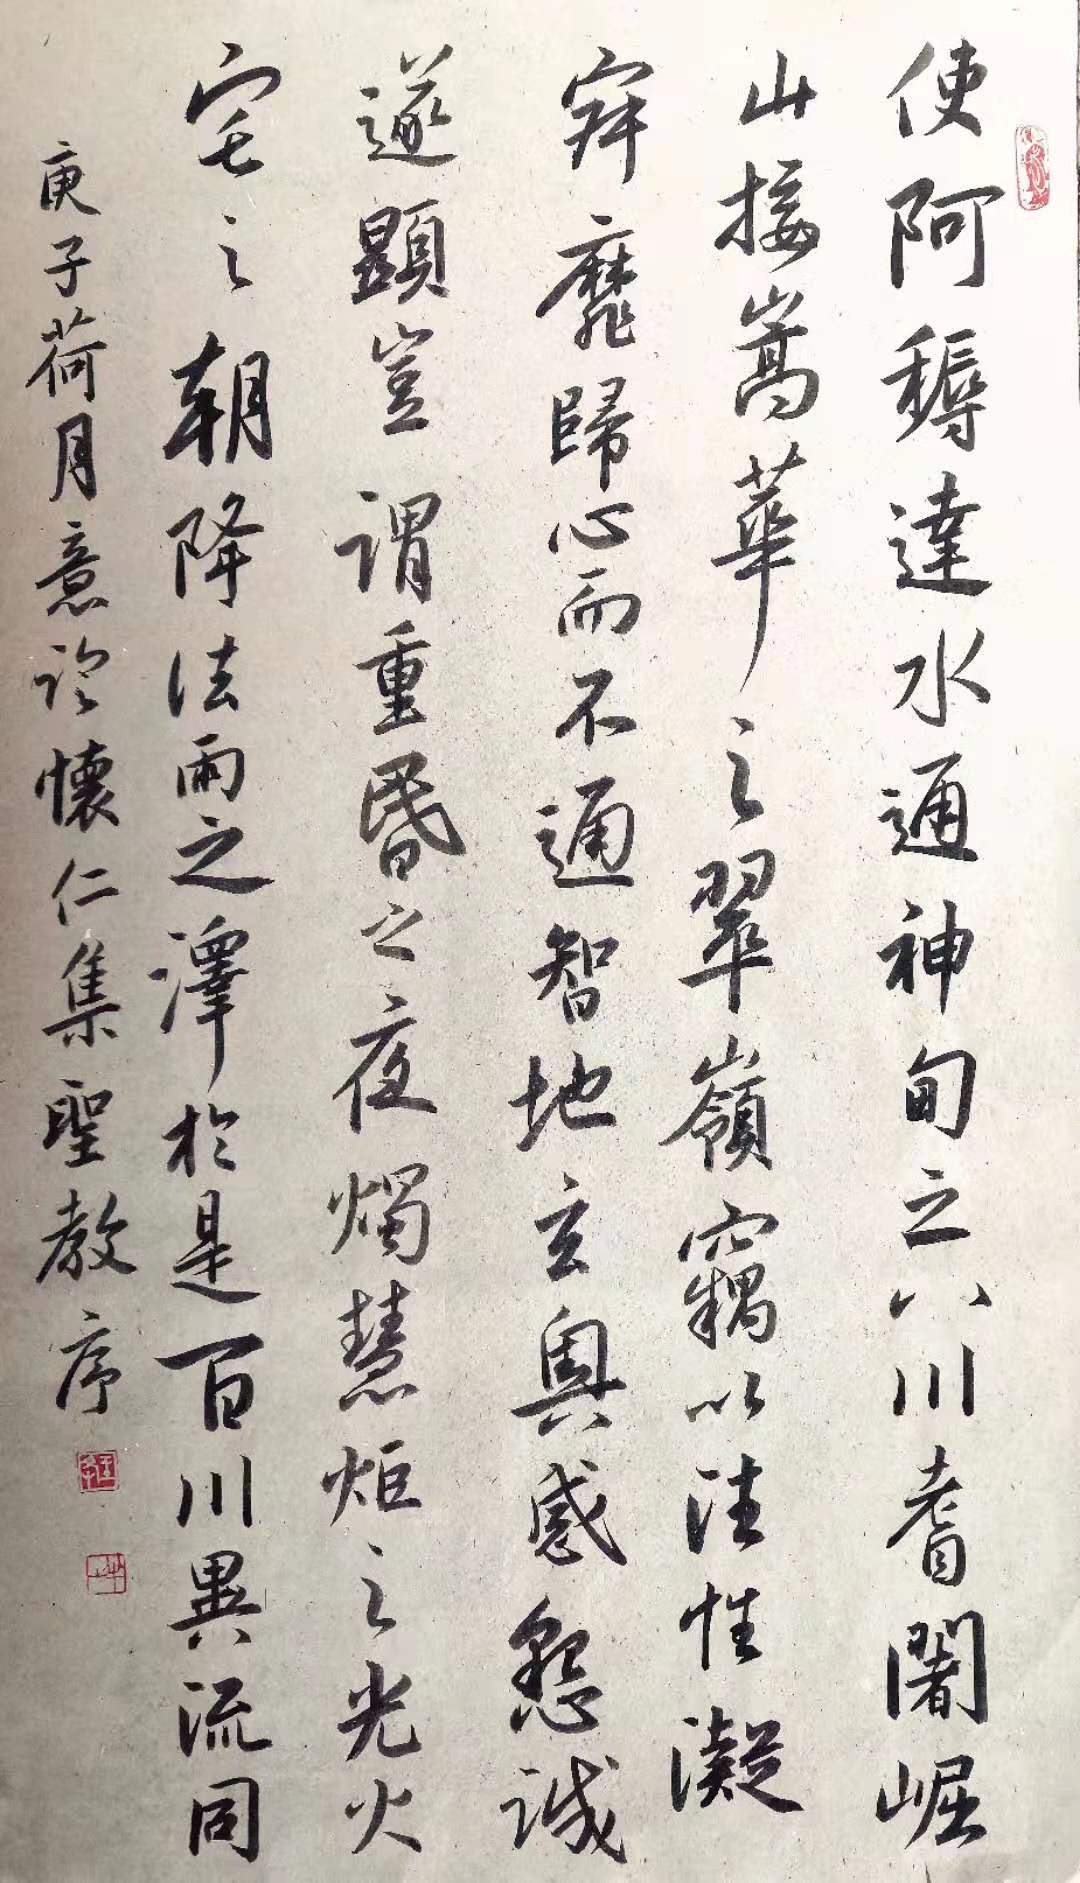 使阿耨達水通神甸之八川耆闍崛
山接嵩華之翠嶺竊以法性凝
寂靡歸心而不通智地玄奧感懇誠
遂顯豈謂重昬之夜燭慧炬之光火
宅之朝降法雨之澤於是百川異流同
庚子荷月意臨懷仁集聖教序